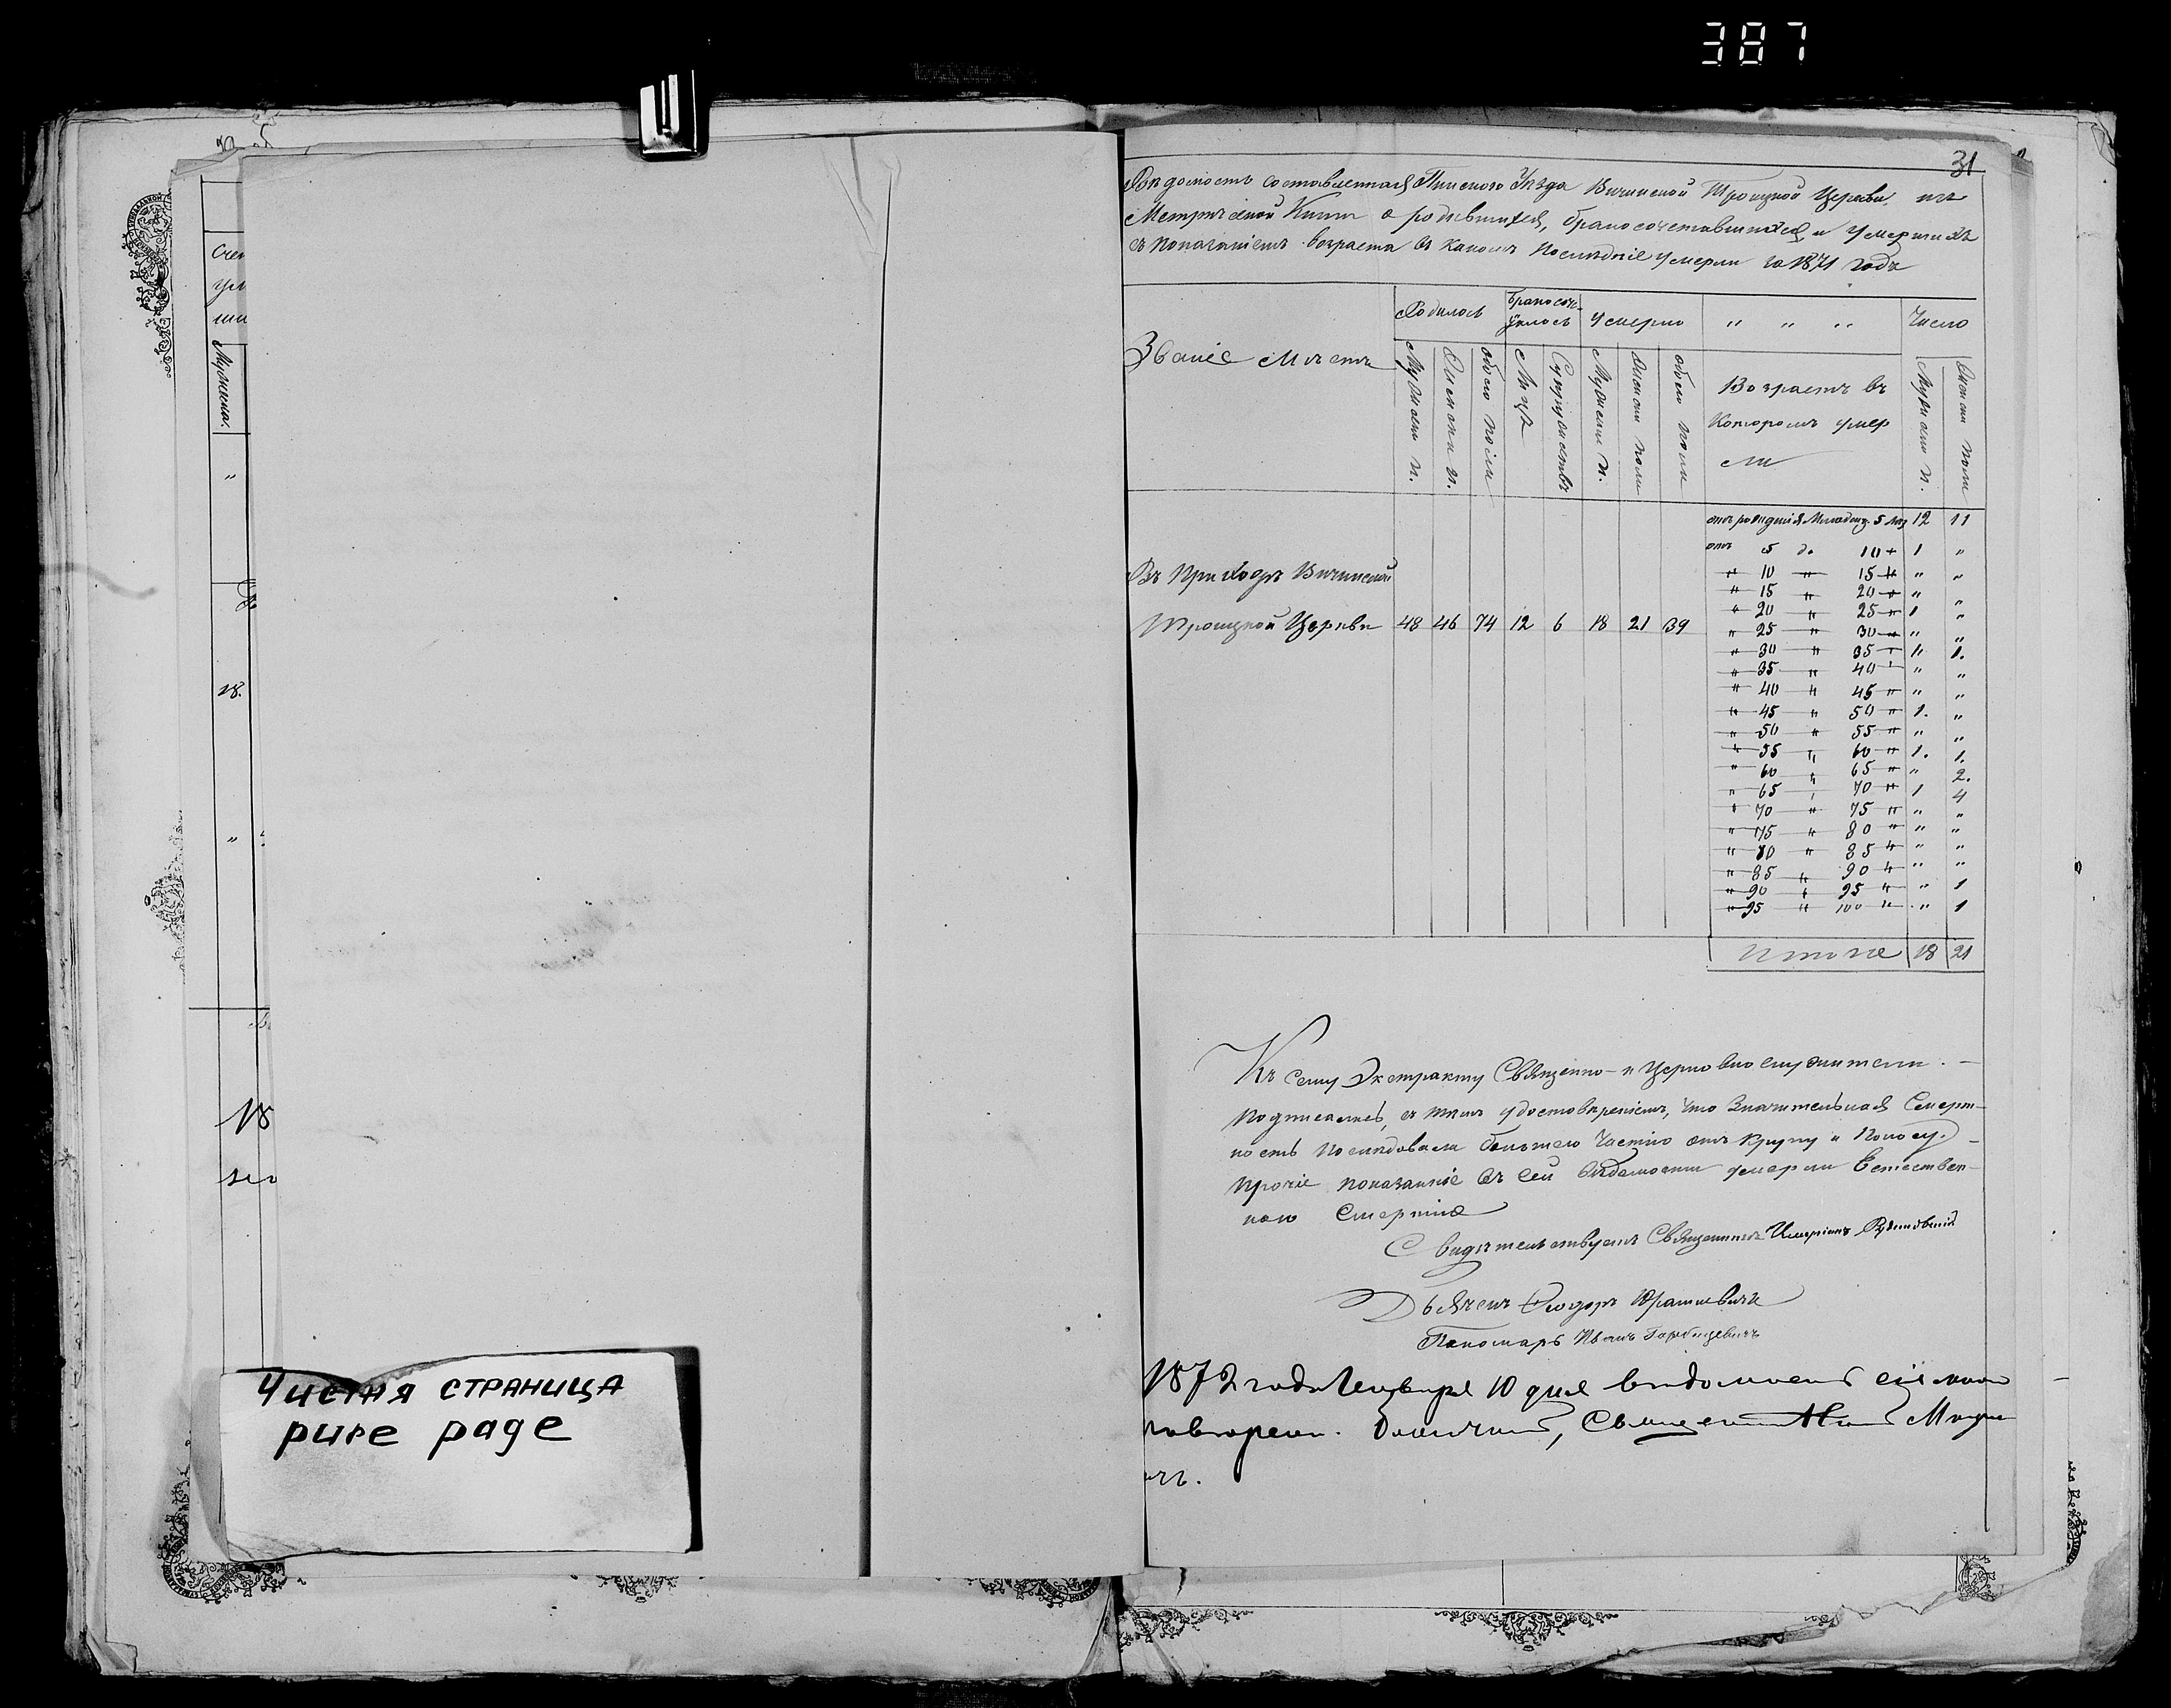 387
31
Вѣдомость составленная Пинскаго Уѣзда Вичинской Троицкой Церкви изъ
Метрической Книги о родившихся, бракосочетавшихся и умершихъ
съ показаніемъ возраста въ какомъ послѣдніе умерли за 1871 годъ
Званіе мѣстъ
Родилось
Бракосоче-
талось
Умерло
" " "
Число
Мужеск п.
Женски п.
обоего пола
Лицъ
Супружествъ
Мужески п.
Женски пола
обоего пола
Возрастъ въ
Которомъ умер
ли
Мужеска п.
Женска пола
отъ рожденія Младенц. 5 лѣт 12 11
отъ 5 до 10 " 1 "
" 10 " 15 " " "
" 15 " 20 " " "
" 20 " 25 " 1 "
" 25 " 30 " " "
" 30 " 35 " " 1.
" 35 " 40 " " "
" 40 " 45 " " "
" 45 " 50 " 1. "
" 50 " 55 " " "
" 55 " 60 " 1. 1.
" 60 " 65 " " 2.
" 65 " 70 " 1 4
" 70 " 75 " " "
" 75 " 80 " " "
" 80 " 85 " " "
" 85 " 90 " " "
" 90 " 95 " " 1
" 95 " 100 " " 1
Итого 18 21
Въ Приходѣ Вичинской
Троицкой Церкви 48 46 74 12 6 18 21 39
Къ сему Экстракту Священно-и Церковнослужители
подписались, съ тѣмъ удостовѣреніемъ, что значительная Смерт-
ность послѣдовала большею частію отъ крупу и поносу.
Прочіе показанные въ сей вѣдомости умерли Естествен-
ною Смертію
Свидѣтельствуетъ Священникъ
Дьячекъ Ѳеодоръ
Пономарь Иванъ Горбацевичъ
1872 года Генваря 10 дня вѣдомость сію
Священникъ
счет
ум
ши
Мужеска.
"
18.
"
18
Чистая страница
pure page